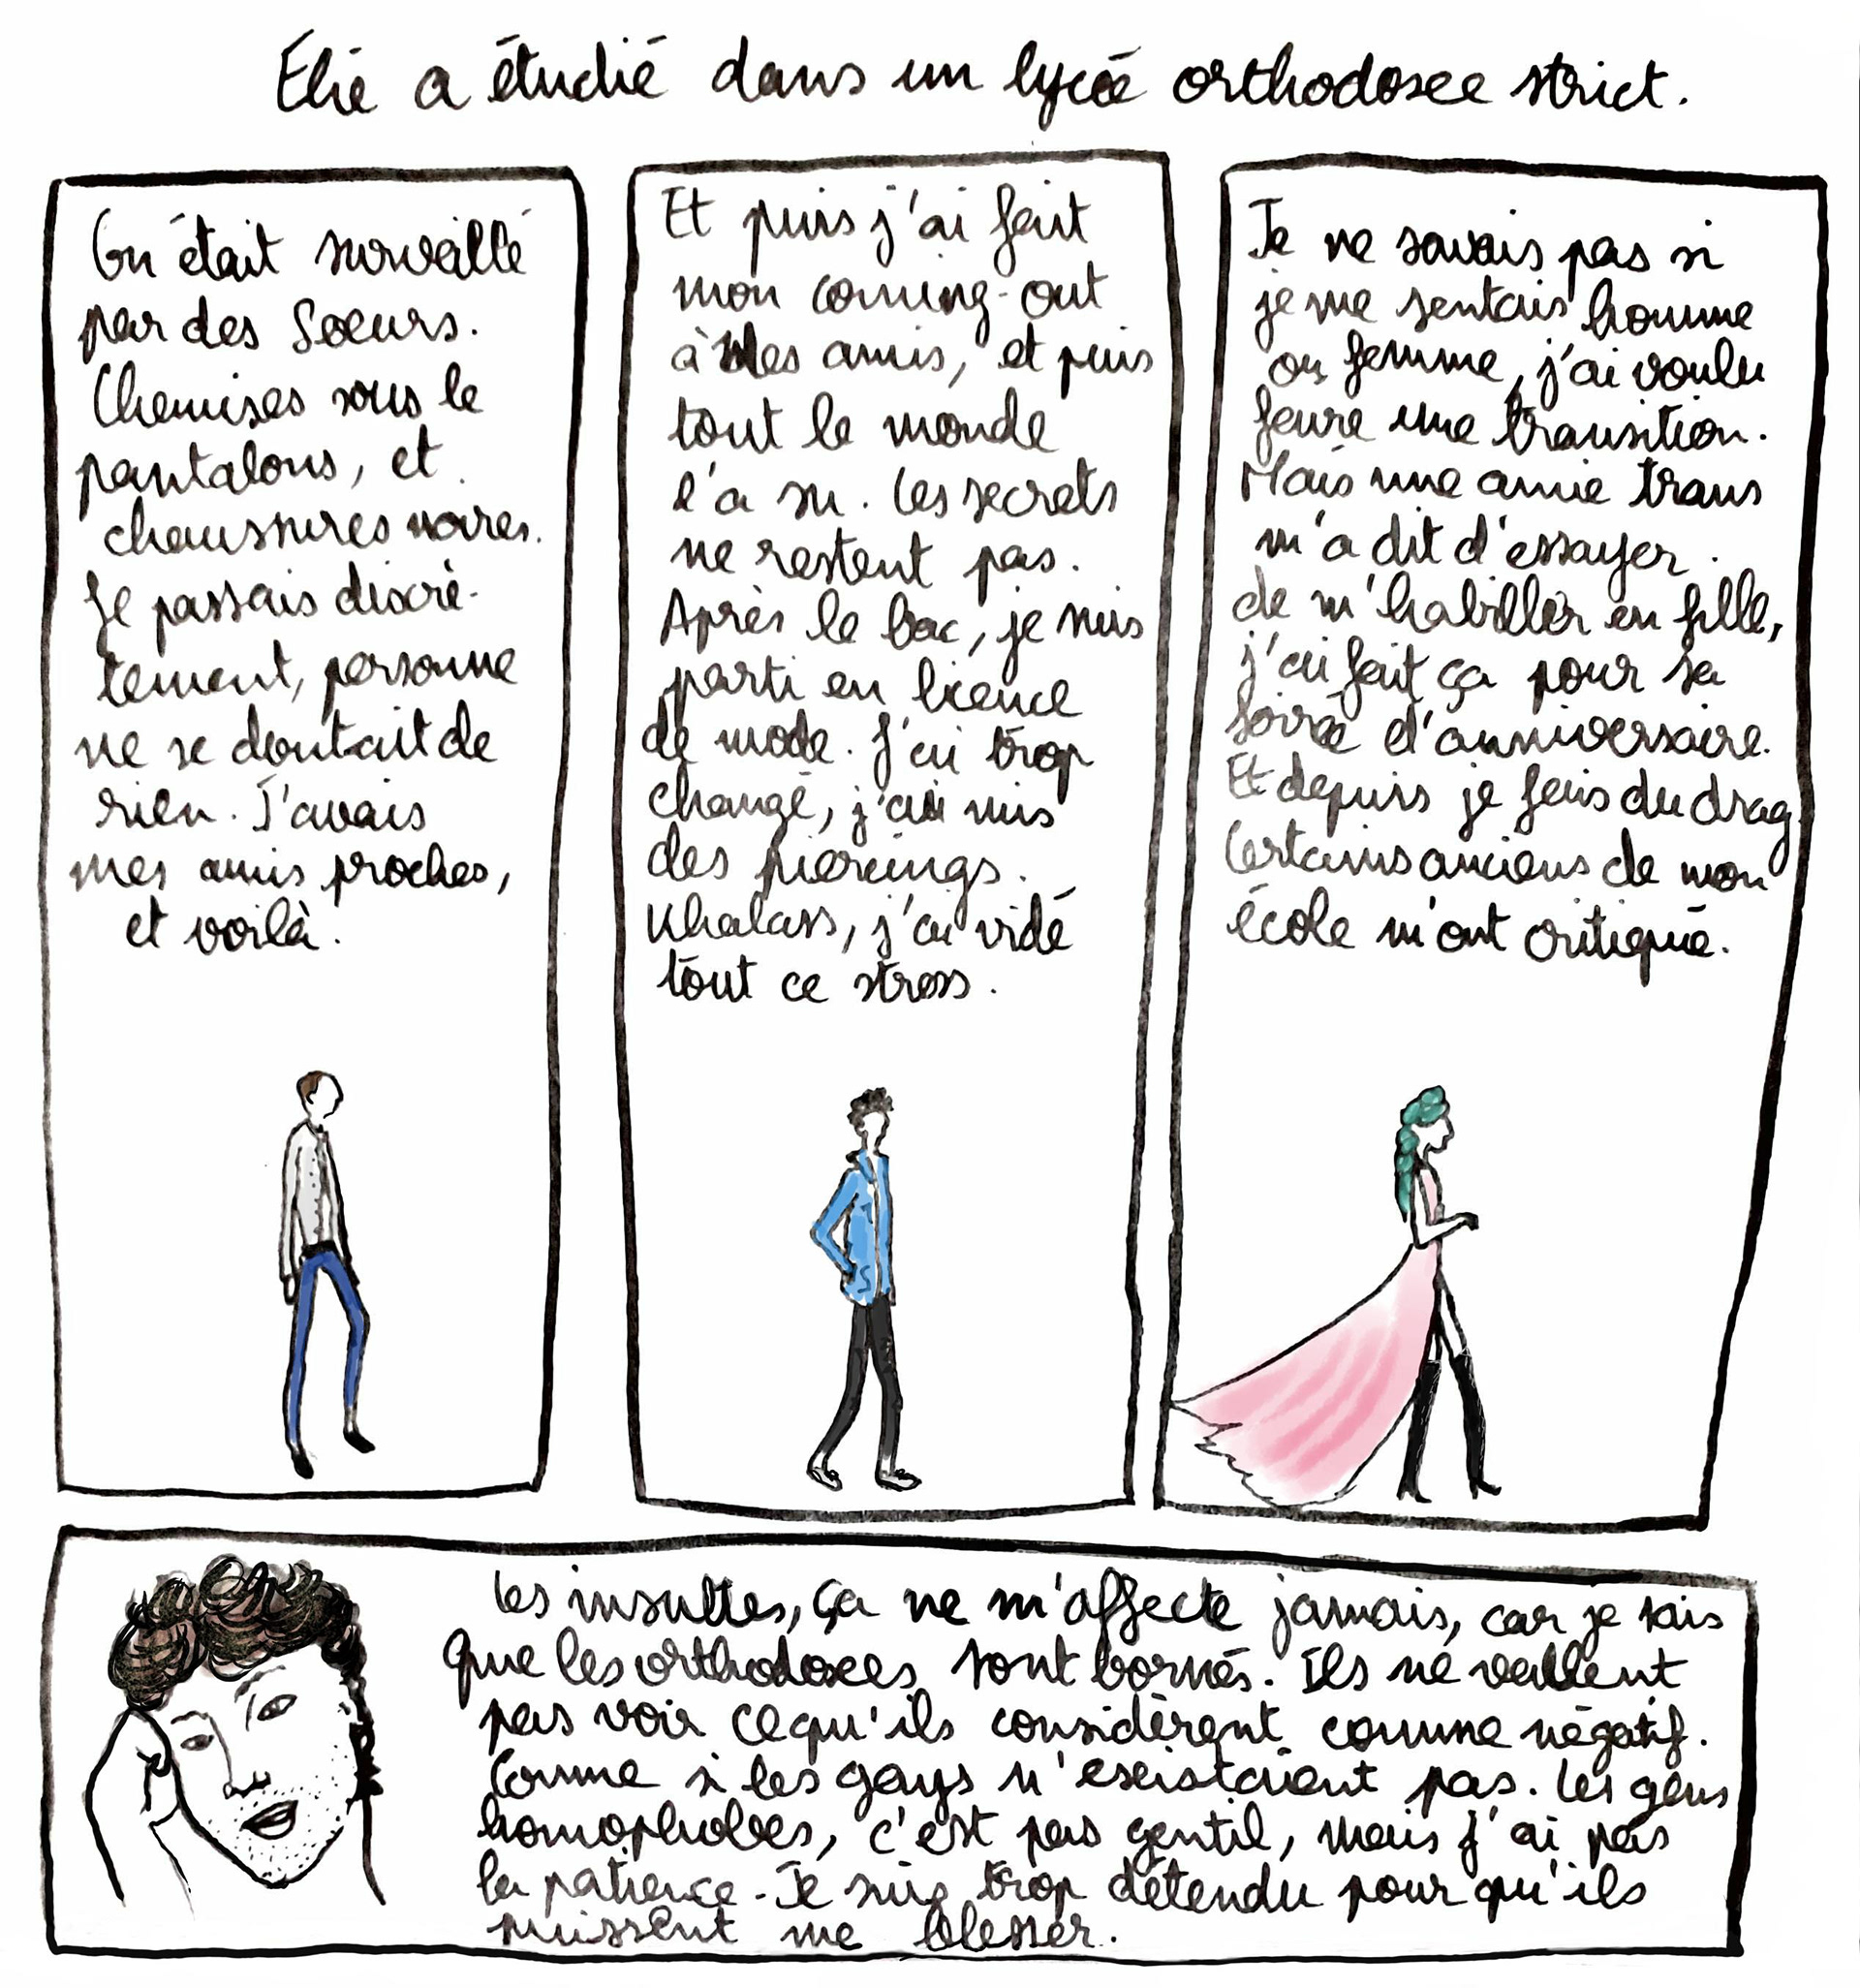 Elie a étudié dans un lycée orthodoxe strict.
On était surveillé
par des Soeurs.
Chemises sous le
pantalons, et
chaussures noires.
Je passais discrè-
tement, personne
ne se doutait de
rien. J'avais
mes amis proches,
et voilà.
Et puis j'ai fait
mon coming-out
à mes amis, et puis
tout le monde
l'a su. Les secrets
ne restent pas.
Après le bac, je suis
parti en licence
de mode. J'ai trop
changé, j'ai mis
des piercings.
Khalass, j'ai vidé
tout ce stress.
Je ne savais pas si
je me sentais homme
ou femme, j'ai voulu
faire une transition.
Mais une amie trans
m'a dit d'essayer
de m'habiller en fille,
j'ai fait ça pour sa
soirée d'anniversaire.
Et depuis je fais du drag
Certains anciens de mon
école m'ont critiqué.
Les insultes, ça ne m'affecte jamais, car je sais
que les orthodoxes sont bornés. Ils ne veulent
pas voir ce qu'ils considèrent comme négatif.
Comme si les gays n'existaient pas. Les gens
homophobes, c'est pas gentil, mais j'ai pas
la patience. Je suis trop détendu pour qu'ils
puissent me blesser.